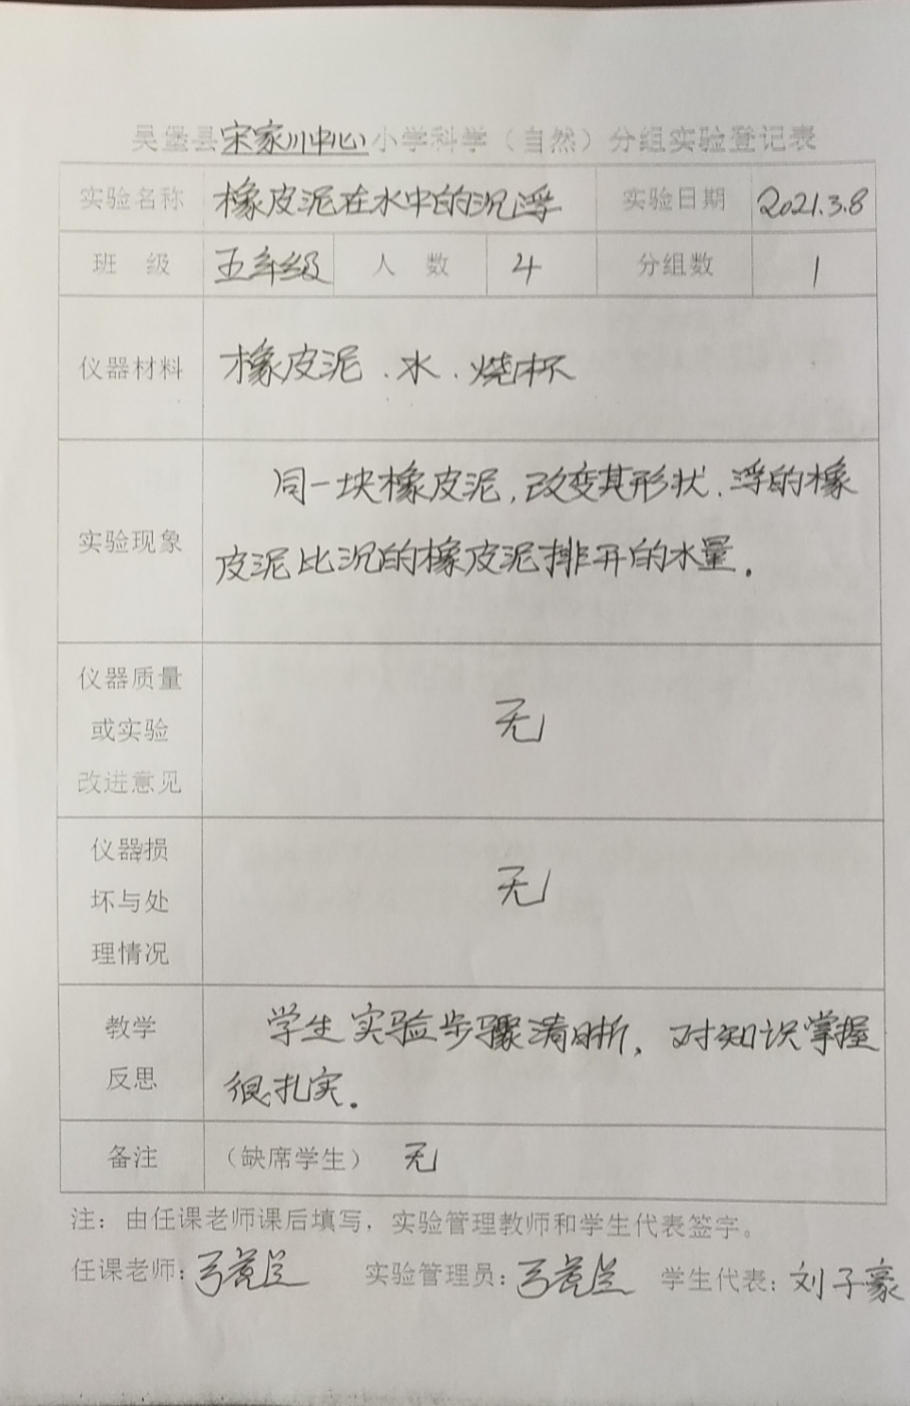 吴堡县宋家川中心小学科学（自然）分组实验登记表
实验名称 橡皮泥在水中的沉浮 实验日期 2021.3.8
班 级 五年级 人 数 4 分组数 1
仪器材料 橡皮泥.水.烧杯
同一块橡皮泥,改变其形状.浮的橡
实验现象
皮泥比沉的橡皮泥排开的水量.
仪器质量
或实验
改进意见
无
仪器损
坏与处
理情况
无
教学
反思
学生实验步骤清晰,对知识掌握
很扎实.
备注 （缺席学生） 无
注：由任课老师课后填写，实验管理教师和学生代表签字。
任课老师： 实验管理员： 学生代表：刘子豪